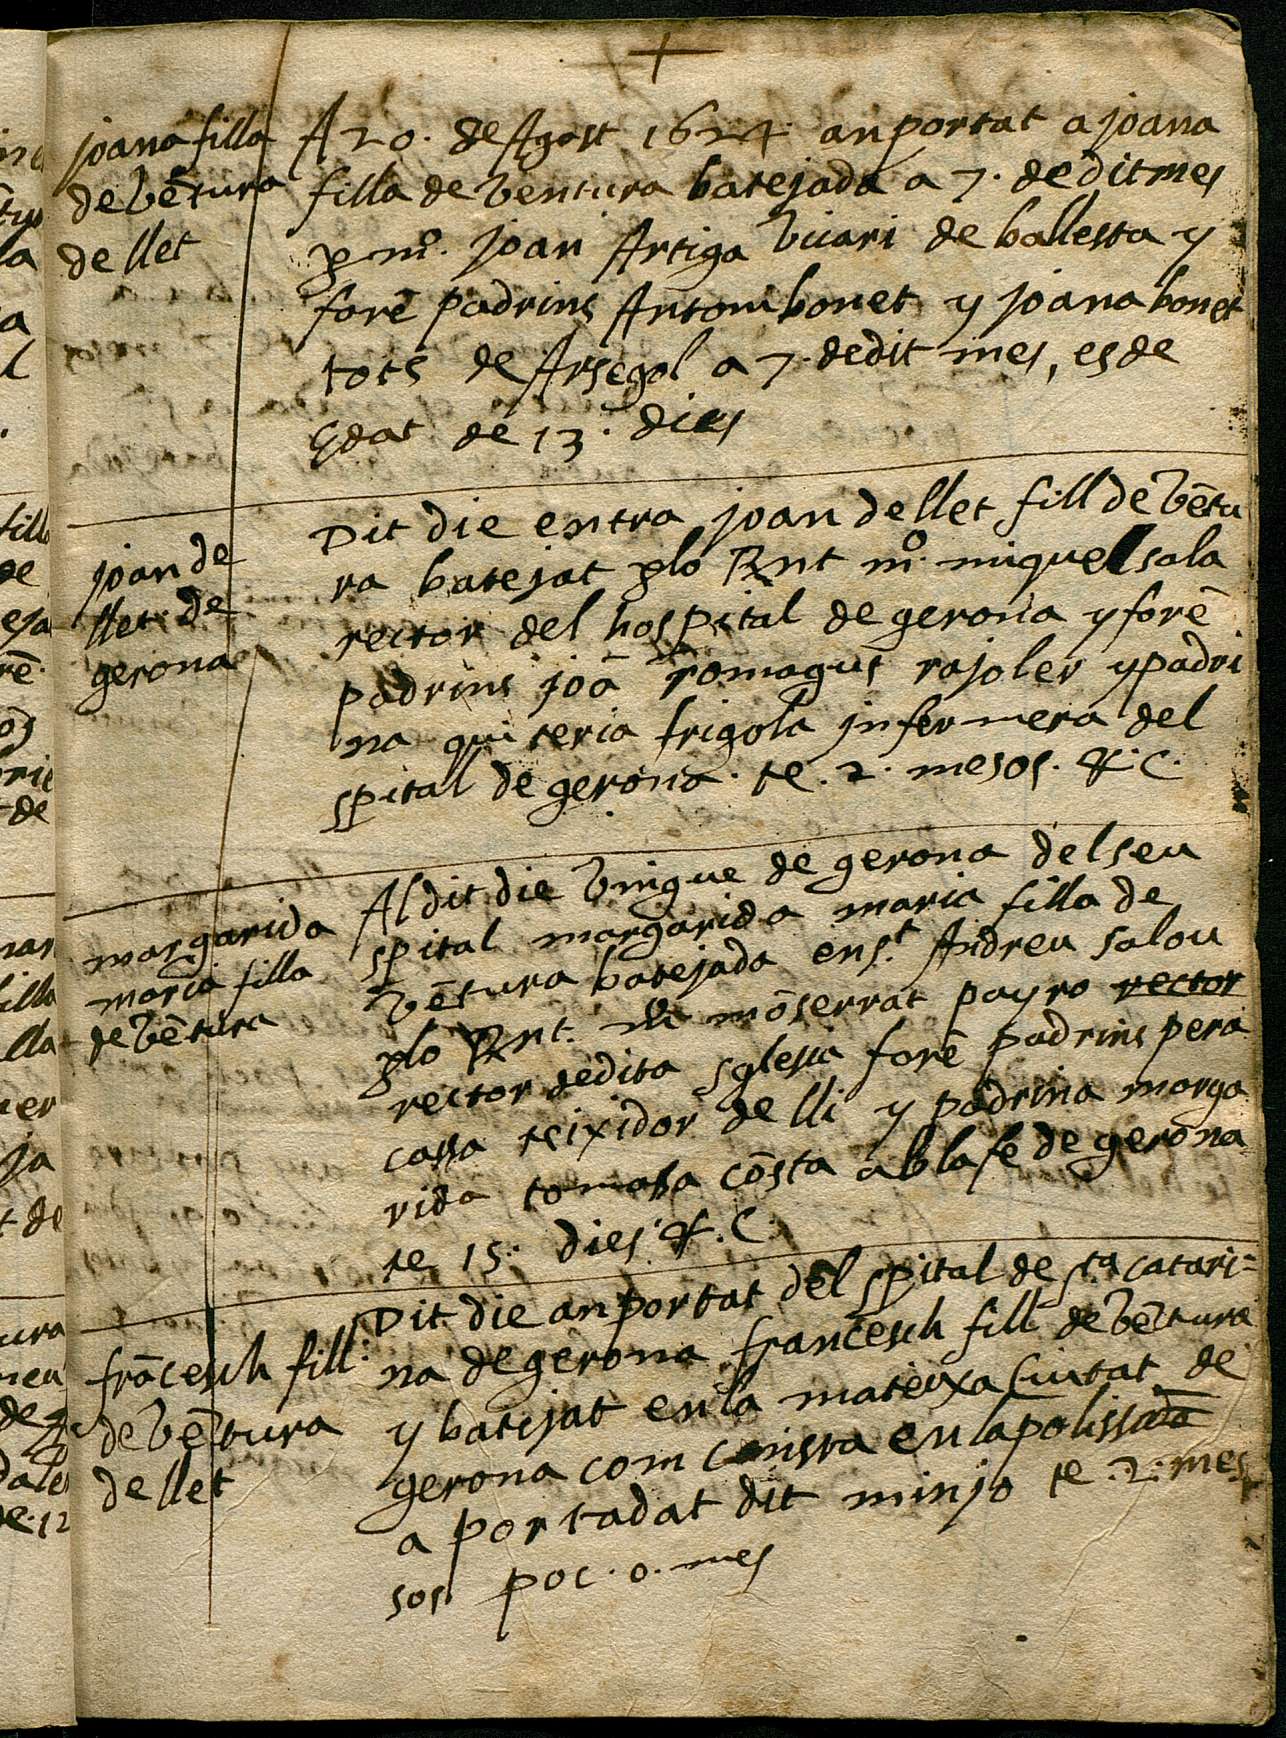 joana filla
de vētura
de llet
A 20. de Agost 1624 an portat a joana
filla de ventura batejada a 7. de dit mes
p mº. joan Artiga vicari de ballesta y
forē padrins Antoni bonet y joana bonet
tots de Arsegol a 7. de dit mes, es de
Edat de 13. dies
joan de
llet de
gerona
Dit die entra joan de llet fill de vētu
ra batejat plo Rnt mº. miquel sala
rector del hospital de gerona y forē
padrins joā romagus rajoler y padri
na quiteria frigola jnfermera del
spital de gerona. te. 2. mesos. &.C.
margarida
maria filla
de vētura
Al dit die vingue de gerona del seu
spital margarida maria filla de
vētura batejada en st. Andreu salou
plo Rnt. mº mōserrat payro rector
rector de dita sglesia forē padrins pera
cassa teixidor de lli y padrina marga
rida tomasa cōsta ab la fe de gerona
te 15. dies &.C.
frācesch fill
de vētura
de llet
Dit die an portat del spital de sta catari=
na de gerona francesch fill de vētura
y batejat en la mateixa Ciutat de
gerona com consta en la polissa
a portadat dit minjo te .2. me
sos poc. o. mes